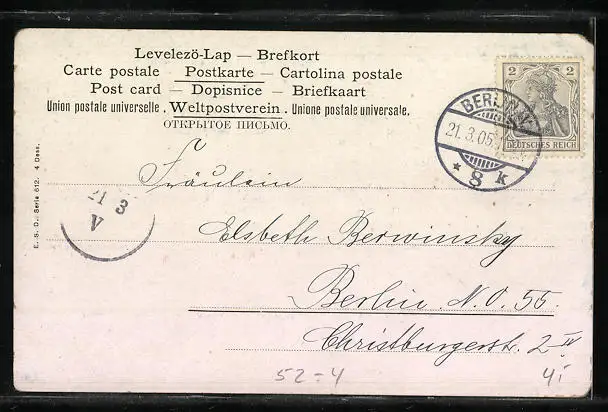 Levelezö-Lap — Brefkort
Carte postale — Postkarte — Cartolina postale
Post card — Dopisnice — Briefkaart
Union postale universelle. Weltpostverein. Unione postale universale.
ОТКРЫТОЕ ПИСЬМО.
2 2
DEUTSCHES REICH
BERLIN
21.3.05.
* 8 k
E. S. D., Serie 612. 4 Dess.
21 3
V
Fräulein
Elsbeth Berwinsky
Berlin N.O. 55
Christburgerst. 2 IV
52=4